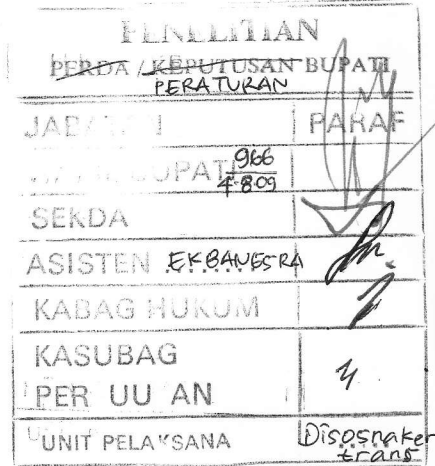 PENELITIAN
PERDA / KEPUTUSAN BUPATI
PERATURAN
JABATAN PARAF
WAKIL BUPATI 966
4-8-09
SEKDA
ASISTEN EKBANGSRA
KABAG HUKUM
KASUBAG
PER UU AN
UNIT PELAKSANA Disosnaker
trans